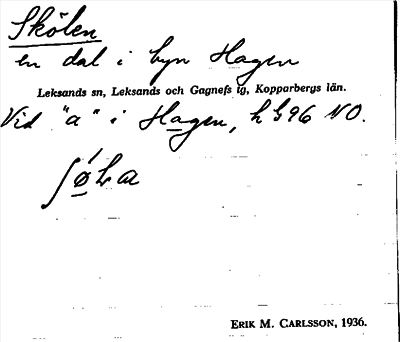 Skölen
en dal i byn Hagen
Leksands sn, Leksands och Gagnefs tg, Kopparbergs län.
Vid "a" i Hagen, h G 96 NO.
ERIK M. CARLSSON, 1936.